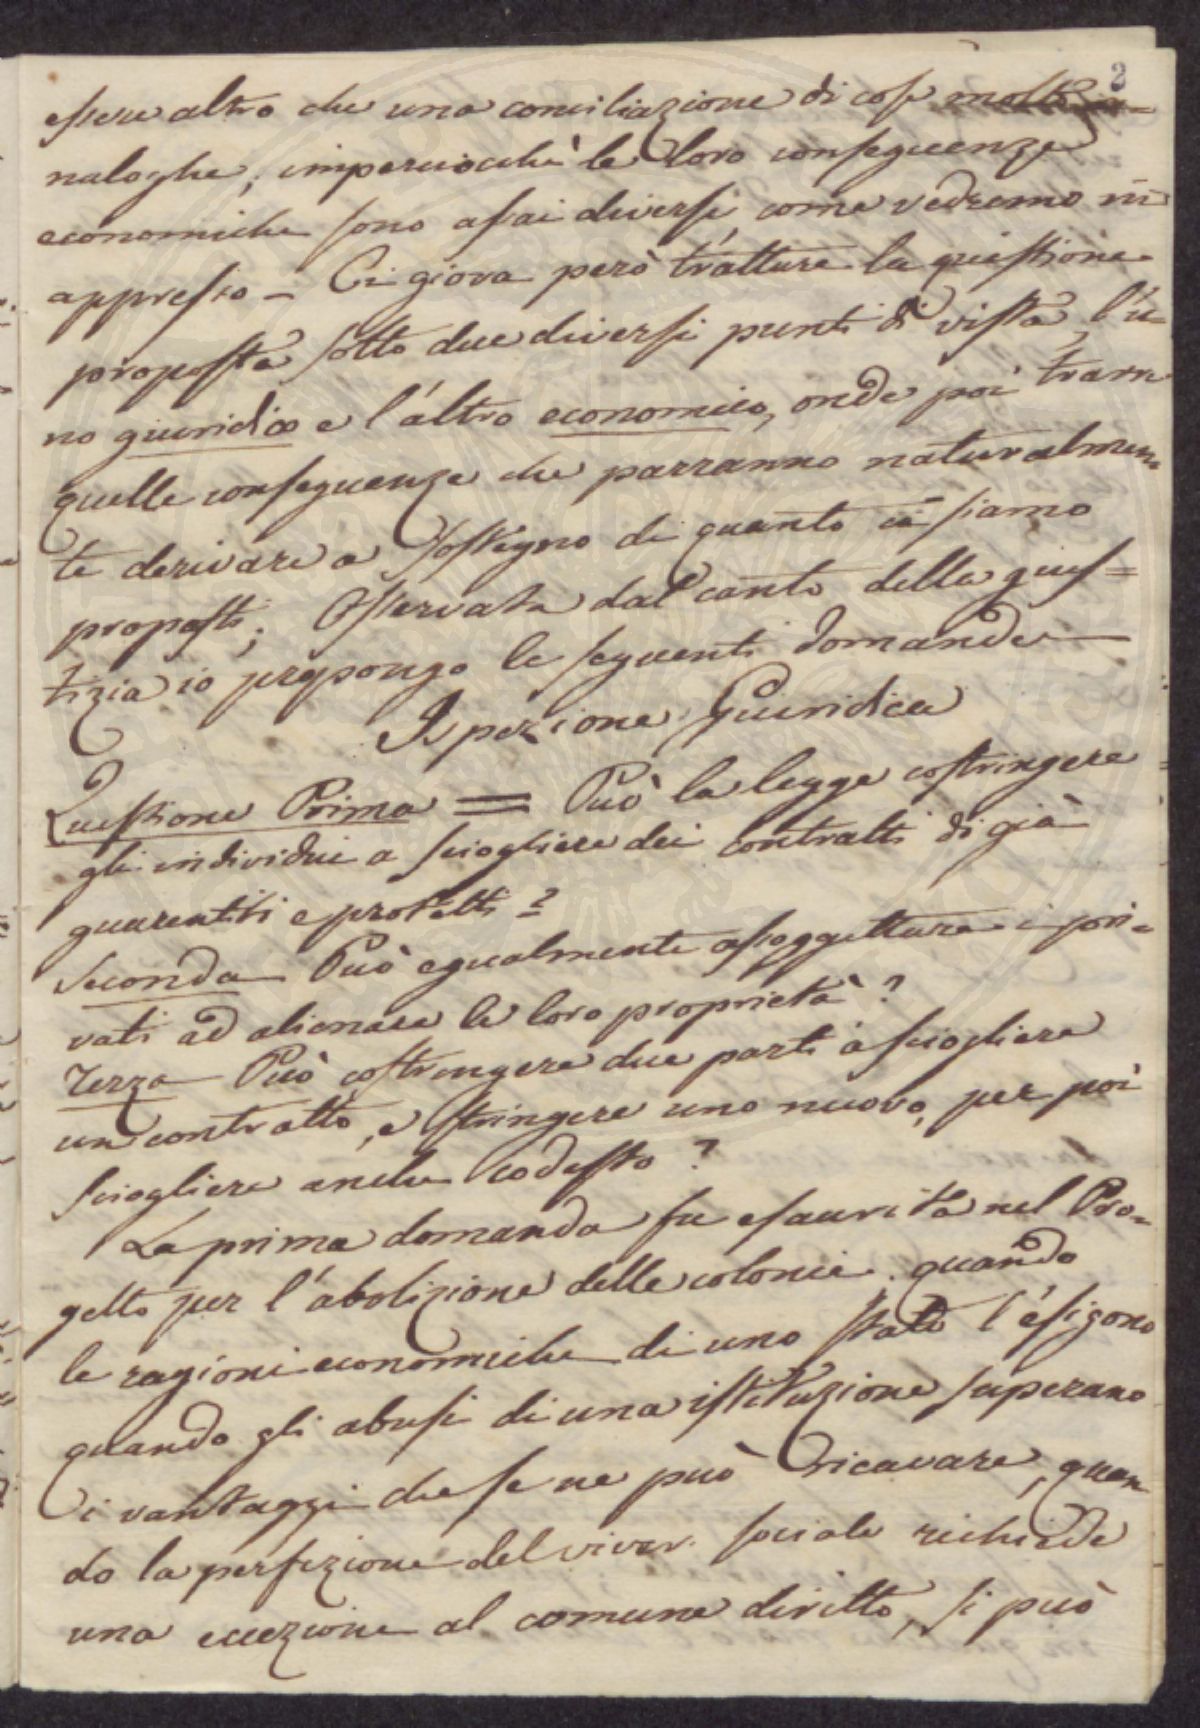 2
essere altro che una conciliazione di cose molto
naloghe; imperciocchè le loro conseguenze
economiche sono assai diverse, come vedremo in
appresso - Ci giova però trattare la quistione
proposta sotto due diversi punti di vista, l'u=
no giuridico e l'altro economico, onde poi trarn
quelle conseguenze che parranno naturalmen
te derivare a sostegno di quanto ci siamo
proposti; Osservata dal canto della gius=
tizia io propongo le seguenti domande
Ispezione Giuridica
Questione Prima = Può la legge costringere
gli individui a sciogliere dei contratti di già
guarentiti e protetti?
Seconda Può egualmente assoggettare i pri=
vati ad alienare le loro proprietà?
Terza Può costringere due parti a sciogliere
un contratto, e stringere uno nuovo, per poi
sciogliere anche codesto?
La prima domanda fu esaurita nel Pro=
getto per l'abolizione delle colonie. quando
le ragioni economiche di uno stato l'esigono
quando gli abusi di una istituzione superano
i vantaggi che se ne può ricavare, quan
do la perfezione del viver sociale richiede
una eccezione al comune diritto, si può